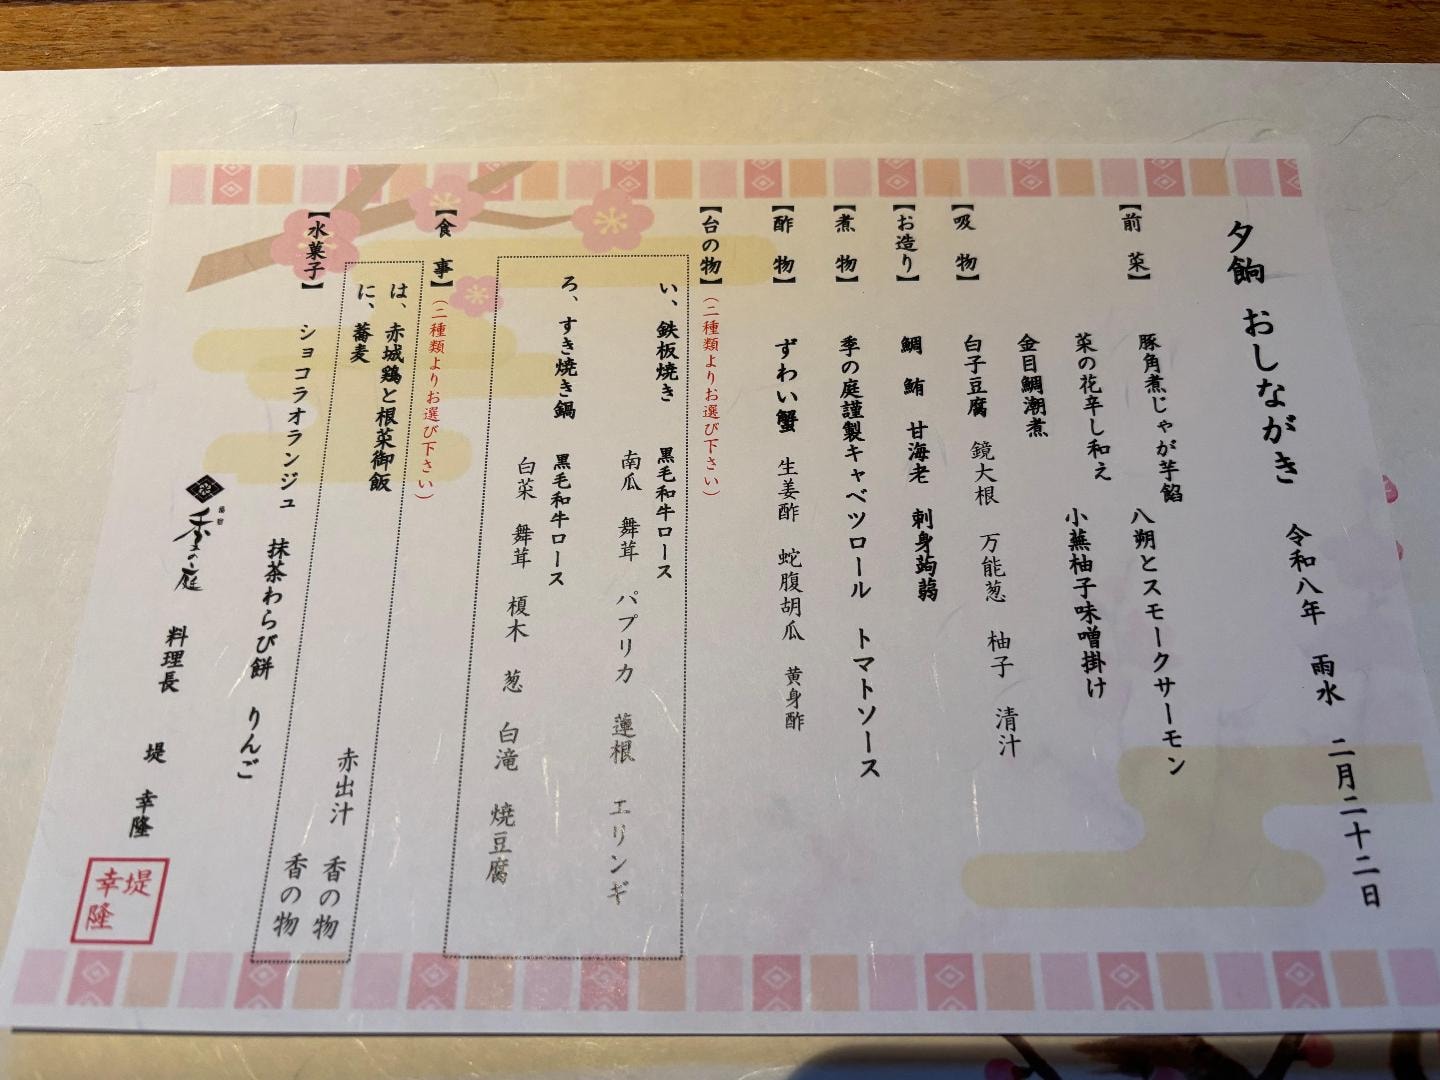 夕餉 おしながき
令和八年 雨水 二月二十二日
【前菜】
豚角煮じゃが芋餡 八朔とスモークサーモン
菜の花辛し和え 小蕪柚子味噌掛け
金目鯛潮煮
【吸物】
白子豆腐 鏡大根 万能葱 柚子 清汁
【お造り】
鯛 鮪 甘海老 刺身蒟蒻
【煮物】
季の庭謹製キャベツロール トマトソース
【酢物】
ずわい蟹 生姜酢 蛇腹胡瓜 黄身酢
【台の物】(二種類よりお選び下さい)
い、鉄板焼き 黒毛和牛ロース
南瓜 舞茸 パプリカ 蓮根 エリンギ
ろ、すき焼き鍋 黒毛和牛ロース
白菜 舞茸 榎木 葱 白滝 焼豆腐
【食事】(二種類よりお選び下さい)
は、赤城鶏と根菜御飯 赤出汁 香の物
に、蕎麦 香の物
【水菓子】
ショコラオランジュ 抹茶わらび餅 りんご
湯宿 季の庭
料理長 堤 幸隆
堤幸隆